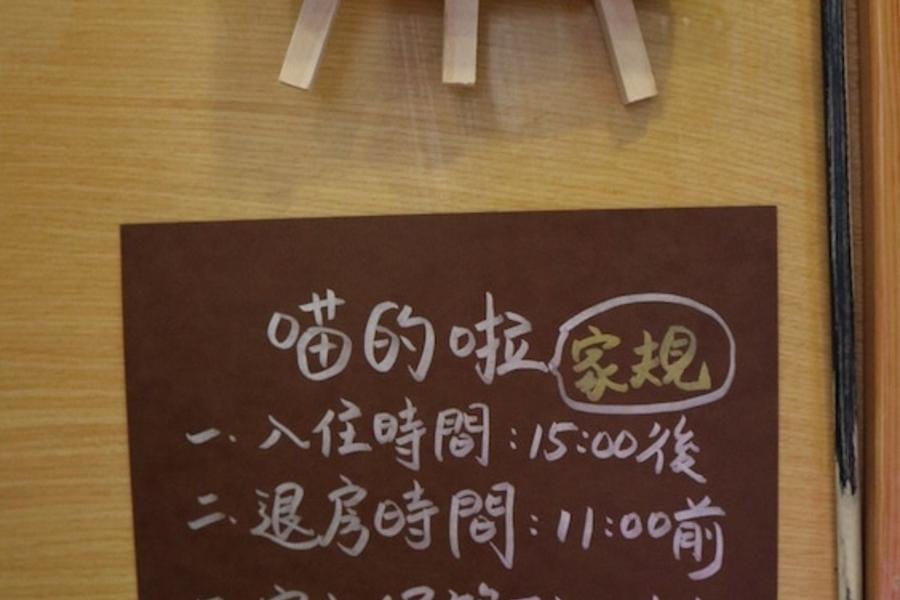 喵的啦 家規
一. 入住時間:15:00後
二. 退房時間:11:00前